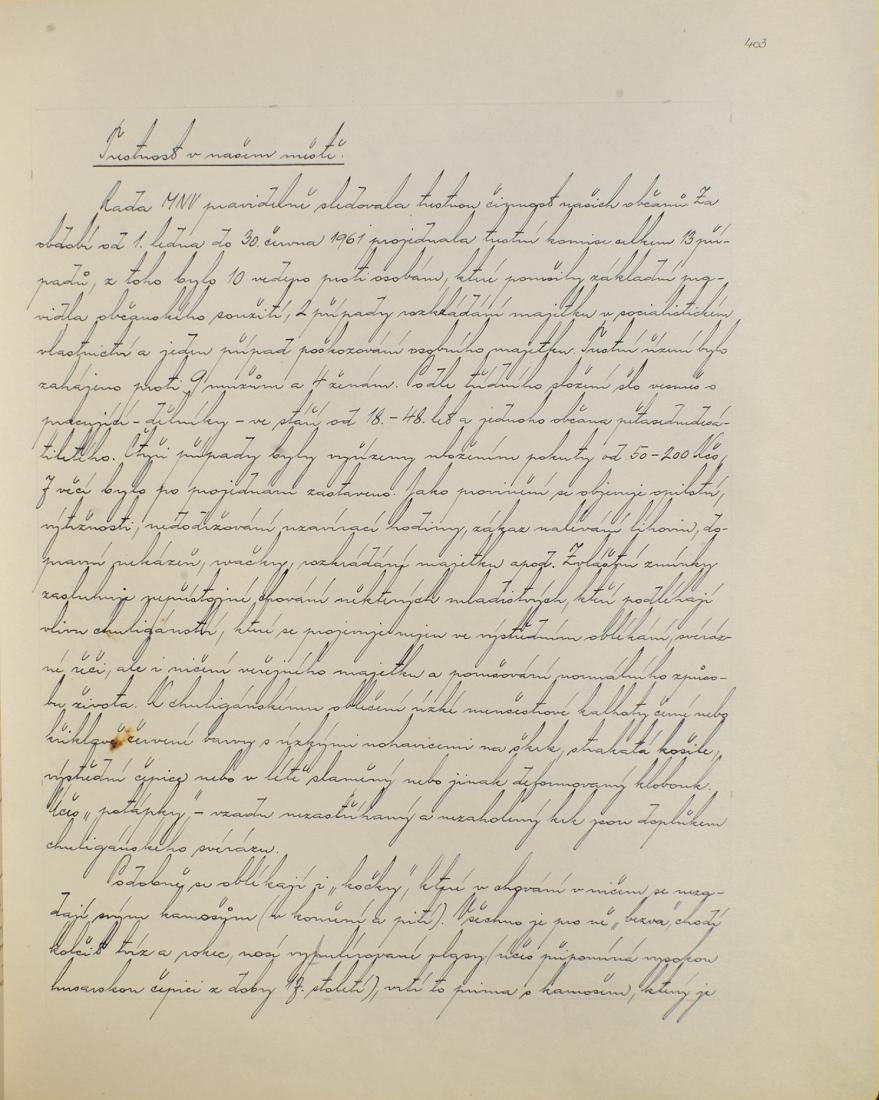 403
Trestnost v našem městě.
Rada MNV pravidelně sledovala trestnou činnost našich občanů. Za
období od 1. ledna do 30. června 1961 projednala trestní komise celkem 13 pří-
padů, z toho bylo 10 vedeno proti osobám, které porušily základní pra-
vidla občanského soužití, 2 případy rozkrádání majetku v socialistickém
vlastnictví a jeden případ poškozování osobního majetku. Trestní řízení bylo
zahájeno proti 9 mužům a 4 ženám. Podle třídního složení šlo vesměs o
pracující - dělníky - ve stáří od 18. - 48. let a jednoho občana pětasedmdesá-
tiletého. Čtyři případy byly vyřízeny uložením pokuty od 50 - 200 Kčs,
7 věcí bylo po projednání zastaveno. Jako provinění se objevuje opilství,
výtržnosti, nedodržování uzavírací hodiny, zákaz nalévání lihovin, do-
pravní nekázeň, rvačky, rozkrádání majetku apod. Zvláštní zmínky
zasluhuje nepřístojné chování některých mladistvých, kteří podléhají
vlivu chuligánství, které se projevuje nejen ve výstředním oblékání, svéráz-
né řeči, ale i ničení veřejného majetku a porušování normálního způso-
bu života. K chuligánskému oblečení úzké menčestrové kalhoty černé nebo
křiklavě červené barvy s úzkými nohavicemi na škrk, strakatá košile,
výstřední čepice nebo v létě slaměný nebo jinak deformovaný klobouk.
Účes „potápky", - vzadu nezastříhaný a nezaholený krk jsou doplňkem
chuligánského svérázu.
Podobně se oblékají i „kočky", které v chování v ničem se neza-
dají svým kamošům (v kouření a pití). Všechno je pro ně „bezva", chodí
kočit tvíz a rokec, nosí vypulírované vlasy (účes připomíná vysokou
husarskou čepici z doby 17. století), vrtí to prima s kamošem, který je